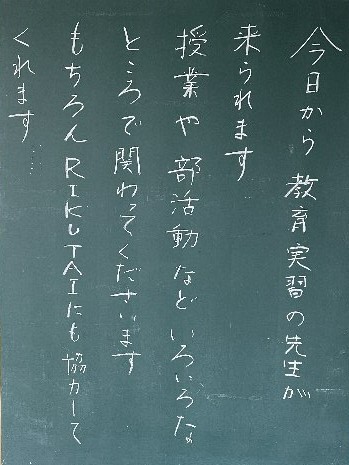 今日から教育実習の先生が
来られます
授業や部活動などいろいろな
ところで関わってくださいます
もちろんRIKUTAIにも協力して
くれます…